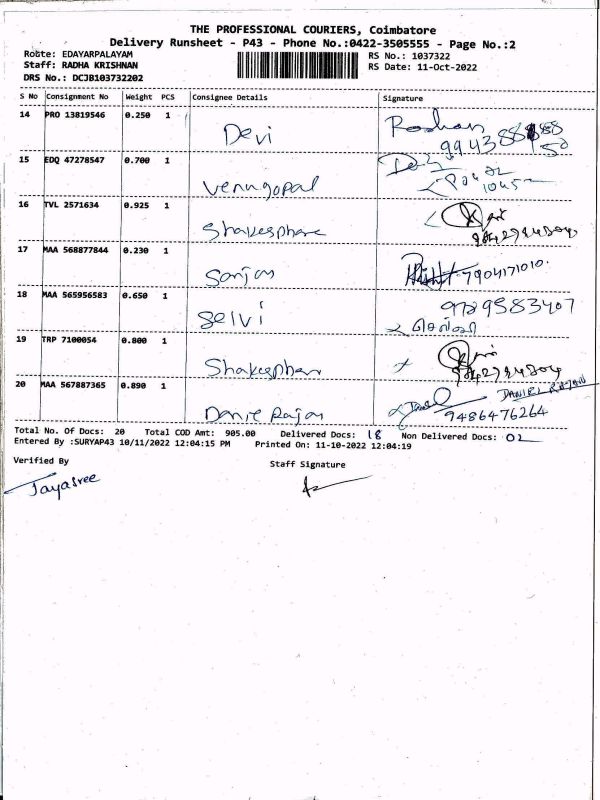 THE PROFESSIONAL COURIERS, Coimbatore
Delivery Runsheet - P43 - Phone No.:0422-3505555 - Page No.:2
Route: EDAYARPALAYAM
RS No.: 1037322
Staff: RADHA KRISHNAN
RS Date: 11-Oct-2022
DRS No.: DCJB103732202
S No Consignment No Weight PCS Consignee Details Signature
14 PRO 13819546 0.250 1 Devi
15 EDQ 47278547 0.700 1 Venugopal
16 TVL 2571634 0.925 1 Shakesphare
17 MAA 568877844 0.230 1 Sanjay 7904171010.
18 MAA 565956583 0.650 1 Selvi 9789583407
செல்வி
19 TRP 7100054 0.800 1 Shakesphare
20 MAA 567887365 0.890 1 Danie Rajan DANIEL RAJAN
9486476264
Total No. Of Docs: 20 Total COD Amt: 905.00 Delivered Docs: 18 Non Delivered Docs: 02
Entered By :SURYAP43 10/11/2022 12:04:15 PM Printed On: 11-10-2022 12:04:19
Verified By
Staff Signature
Jayasree